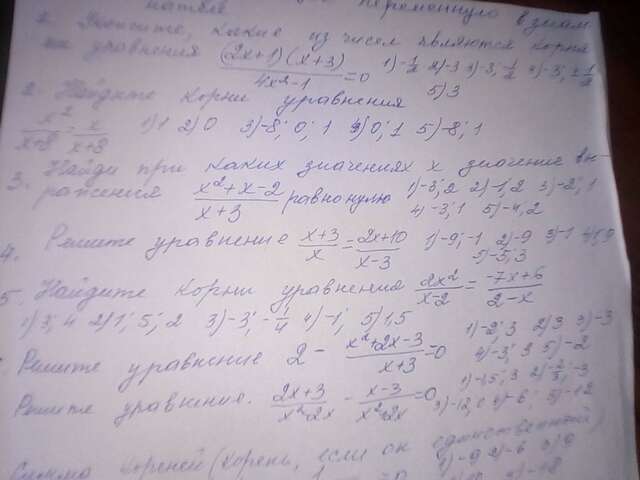 переменную в знам
1. Укажите, какие из чисел являются корня
ми уравнения (2x+1)(x+3)/4x²-1 =0 1)-1/2 2)-3 3)-3; 1/2
5)3
2. Найдите корни уравнения
x²/x+8 = x/x+8 1)1 2)0 3)-8; 0; 1 4)0; 1 5)-8; 1
3. Найди при каких значениях x значение вы-
ражения x²+x-2/x+3 равно нулю 1)-3; 2 2)-1; 2 3)-2; 1
4)-3; 1 5)-4; 2
4. Решите уравнение x+3/x = 2x+10/x-3 1)-9; -1 2)-9 3)-1 4)1; 9
5)-5; 3
5. Найдите корни уравнения 2x²/x-2 = -7x+6/2-x
1)3; 4 2)1; 5; 2 3)-3; -1/4 4)-1; 5)1,5
Решите уравнение 2 - x²+2x-3/x+3 =0 1)-2; 3 2)3 3)-3
4)-3; 3 5)-2
Решите уравнение. 2x+3/x²-2x - x-3/x²-2x =0 1)-1,5; 3 2)-2/3; -3
3)-12; 0 4)-6; 5)-12
Сумма корней (корень, если он единственный)
1)-9 2)-6 3)9